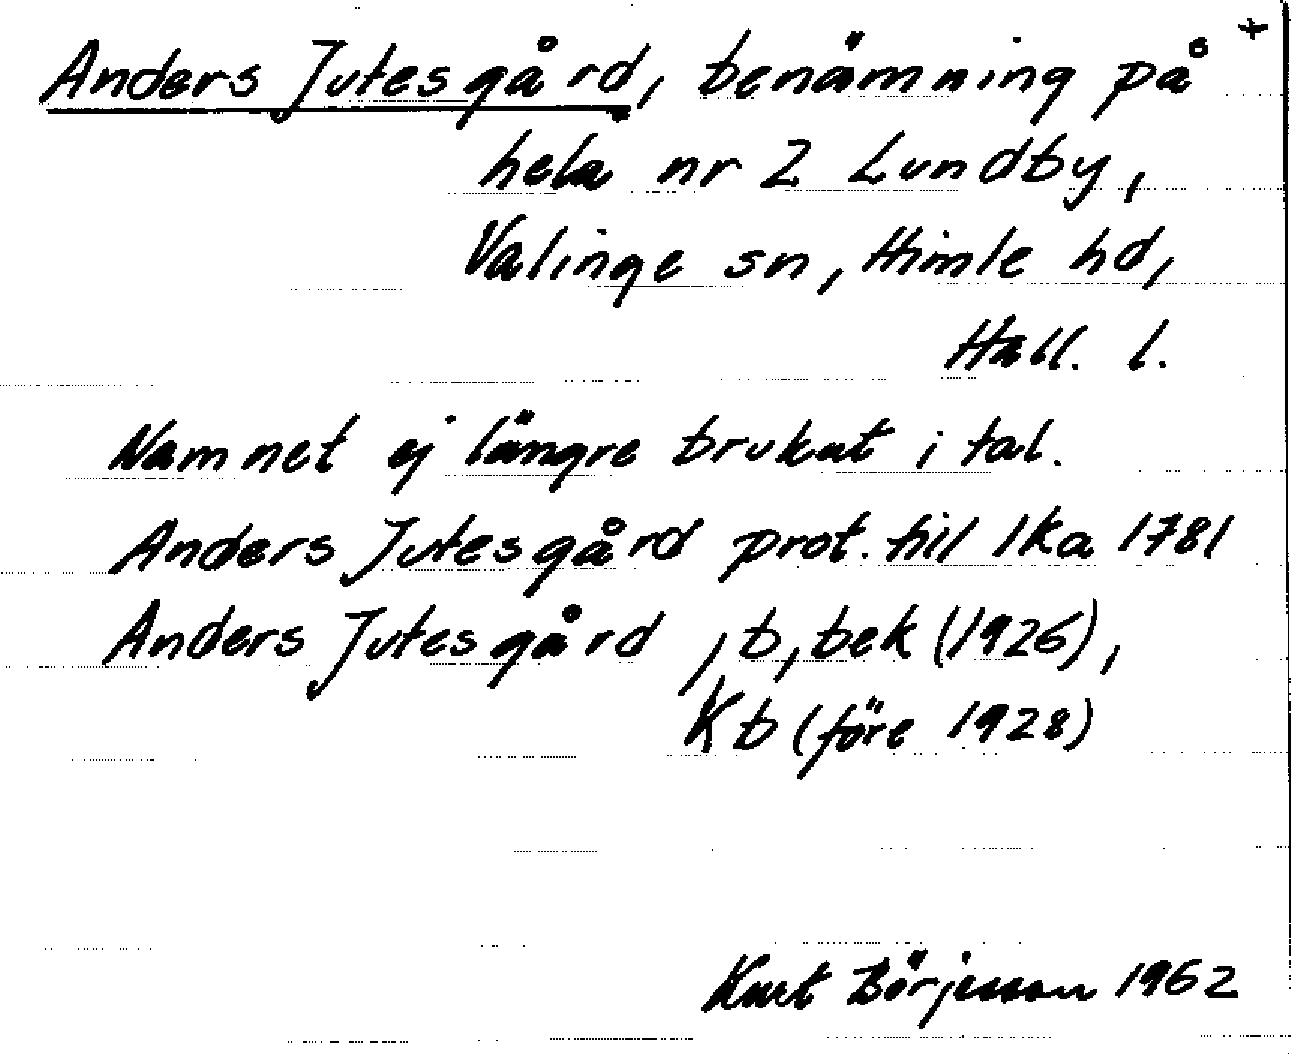 Anders Jutesgård, benämning på +
hela nr 2 Lundby,
Valinge sn, Himle hd,
Hall. l.
Namnet ej längre brukat i tal.
Anders Jutesgård prot. till lka 1781
Anders Jutesgård, b, bek (1926),
Kb (före 1928)
Kurt Börjesson 1962